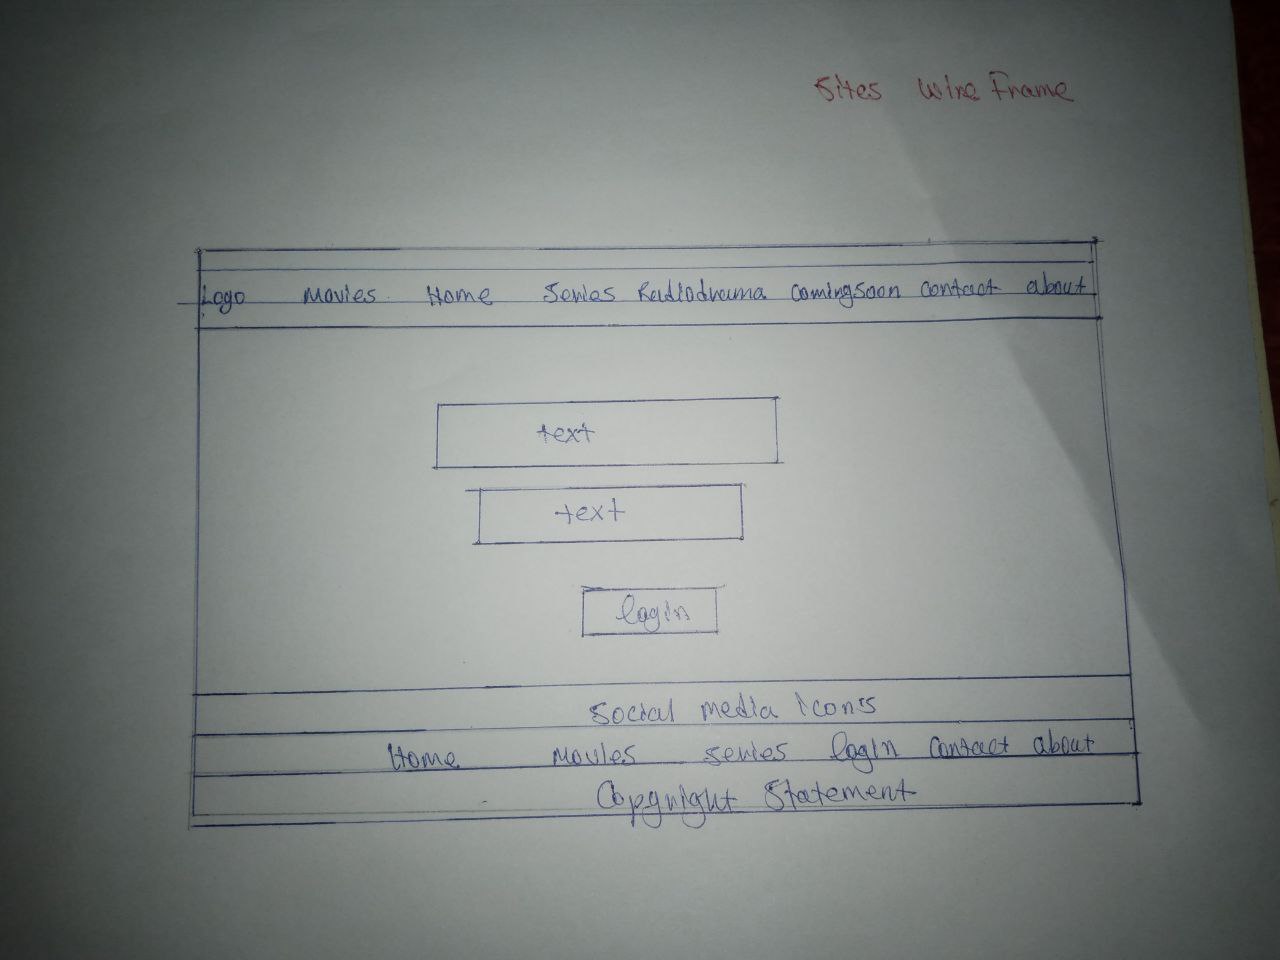 Sites Wire Frame
Logo Movies Home Series Radiodrama Comingsoon Contact about
text
text
login
Social media icons
Home Movies series login contact about
Copyright Statement